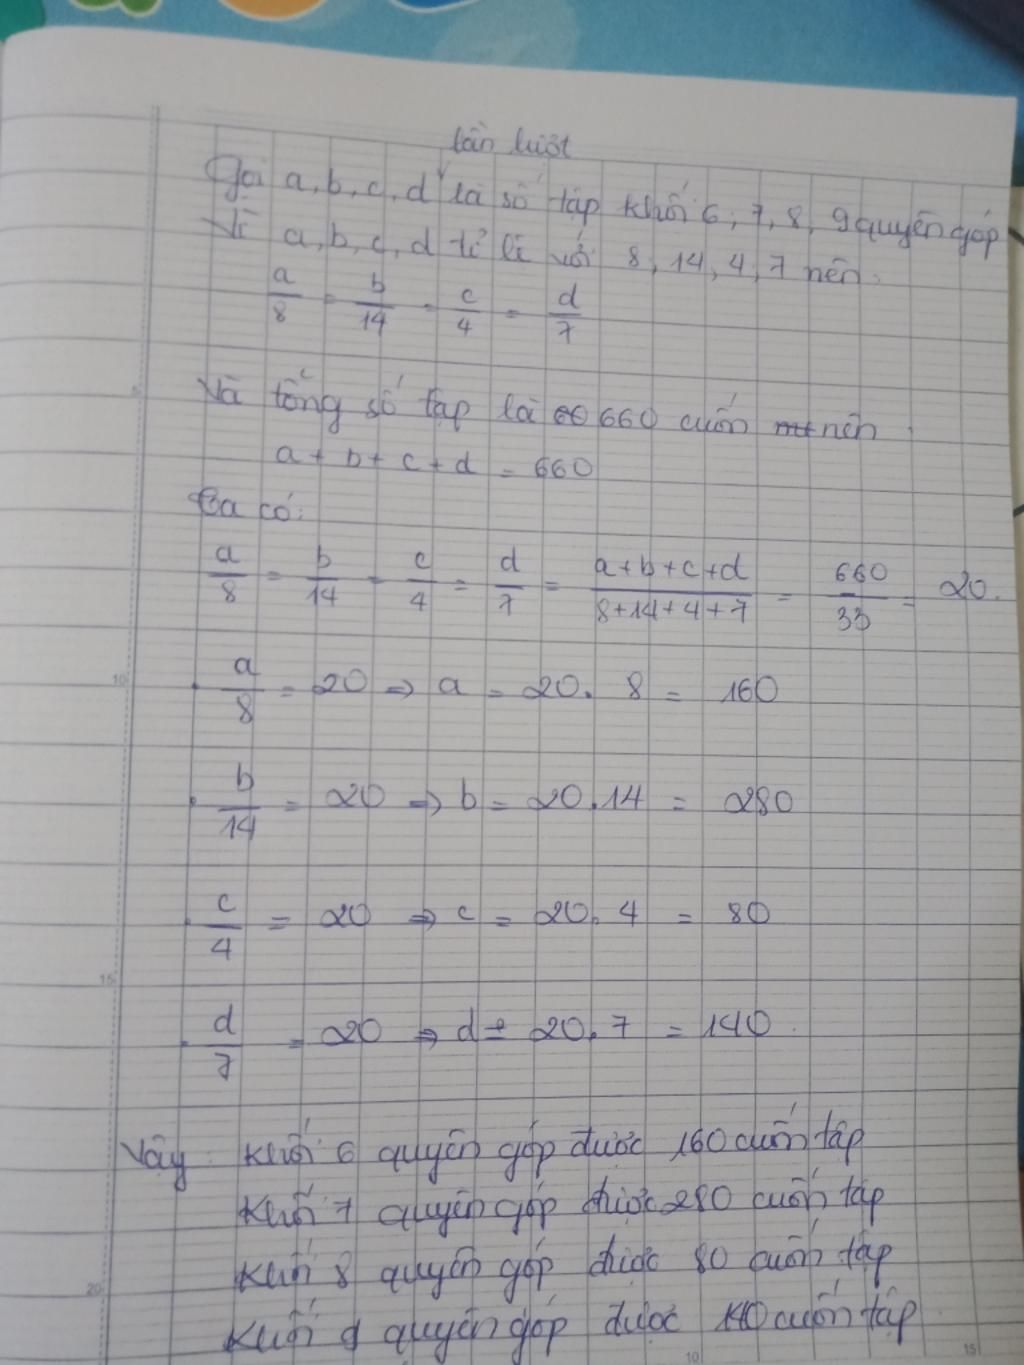 lần lượt
Gọi a, b, c, d là số tập khối 6, 7, 8, 9 quyên góp
Vì a, b, c, d tỉ lệ với 8, 14, 4, 7 nên
a/8 = b/14 = c/4 = d/7
Và tổng số tập là 660 cuốn nên
a + b + c + d = 660
Ta có:
a/8 = b/14 = c/4 = d/7 = a+b+c+d/8+14+4+7 = 660/33 = 20.
a/8 = 20 ⇒ a = 20. 8 = 160
b/14 = 20 ⇒ b = 20.14 = 280
c/4 = 20 ⇒ c = 20. 4 = 80
d/7 = 20 ⇒ d = 20. 7 = 140
Vậy: Khối 6 quyên góp được 160 cuốn tập
Khối 7 quyên góp được 280 cuốn tập
Khối 8 quyên góp được 80 cuốn tập
Khối 9 quyên góp được 140 cuốn tập
5
10
15
20
10
15